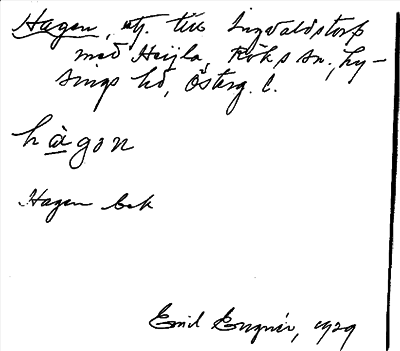 Hagen, utj. till Ingvaldstorp
med Heijla, Röks sn., Ly-
sings hd, Österg. l.
hàgon
Hagen bek
Emil Engnér, 1929